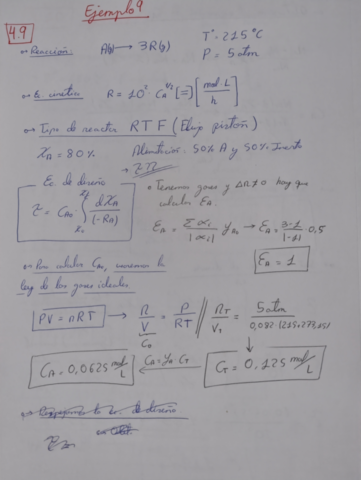 Ejemplo 9
4.9
T° = 215 °C
Reacción: A(g) → 3R(g)
P = 5 atm
Ec cinética R = 10² C_A^{1/2} [=] [mol·L / h]
Tipo de reactor RTF (Flujo pistón)
X_A = 80% Alimentación: 50% A y 50% Inerte
Ec de diseño
τ = C_A0 ∫ dX_A / (-R_A)
Tenemos gases y Δn ≠ 0 hay que
calcular ε_A.
ε_A = Σα_i / |α_i| y_A0 → ε_A = 3-1 / |-1| · 0,5
ε_A = 1
Para calcular C_A0 usaremos la
ley de los gases ideales
PV = nRT → n/V = P/RT // n_T/V_T = 5 atm / 0,082 (215+273,15)
C_A
C_A = 0,0625 mol/L ← C_A = y_A · C_T C_T = 0,125 mol/L